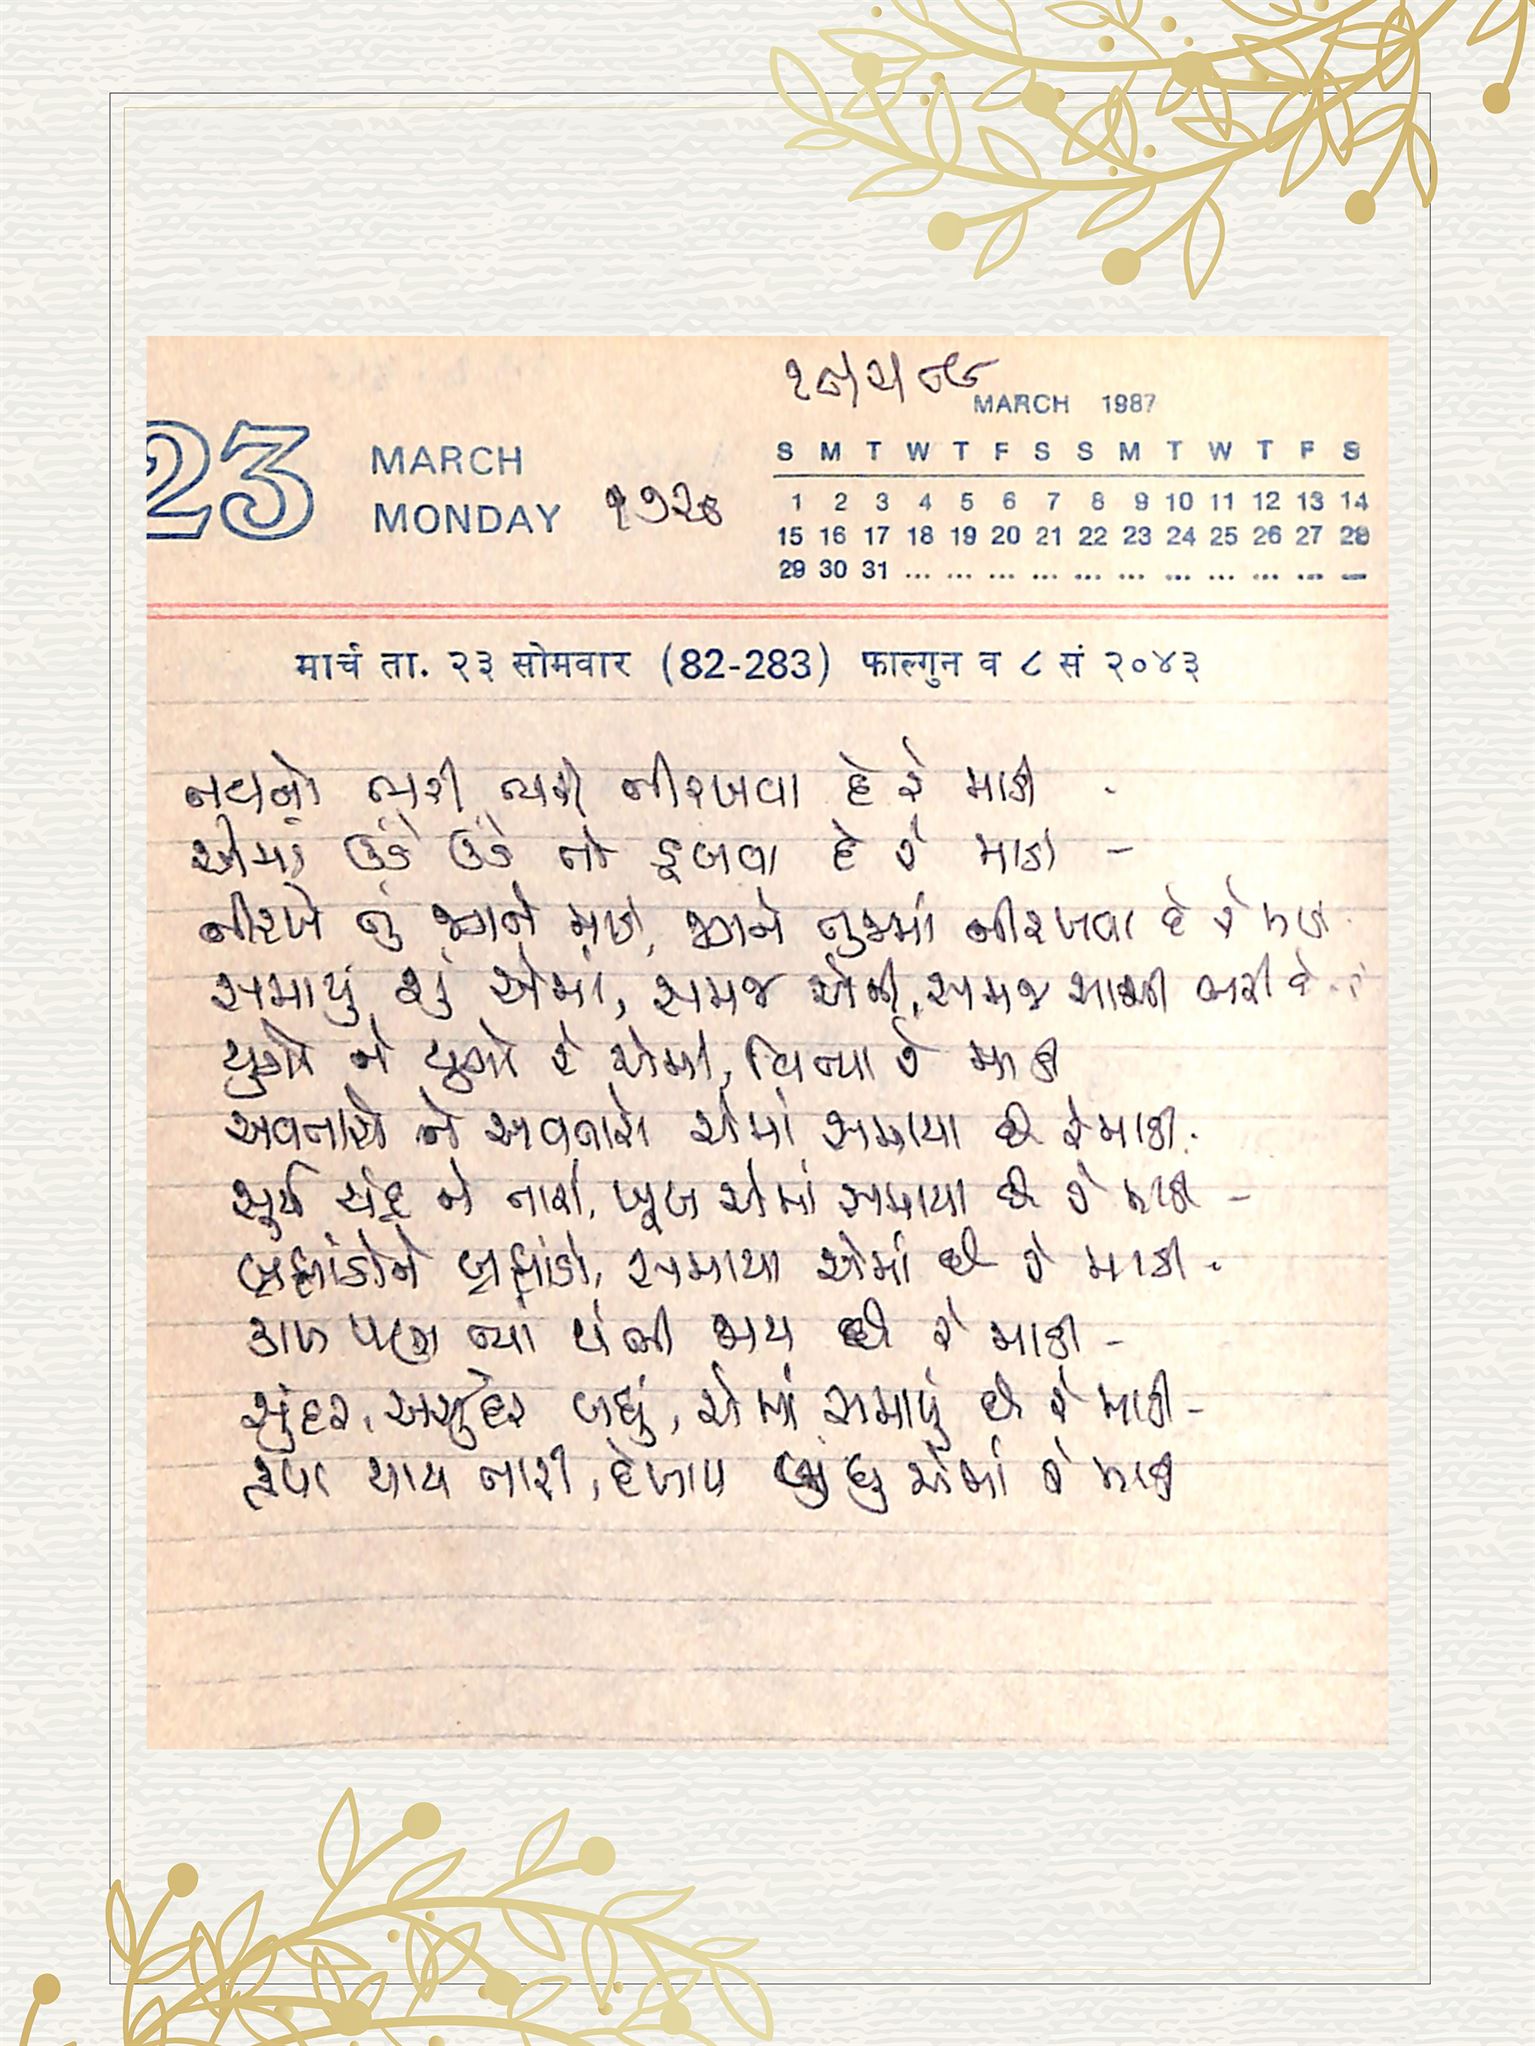 MARCH 1987
23 MARCH
MONDAY ૧૭૨૪
S M T W T F S S M T W T F S
1 2 3 4 5 6 7 8 9 10 11 12 13 14
15 16 17 18 19 20 21 22 23 24 25 26 27 28
29 30 31 ... ... ... ... ... ... ... ... ... ... ...
मार्च ता. २३ सोमवार (82-283) फाल्गुन व ८ सं २०४३
નયનો ભરી ભરી નીરખવા દે રે માડી -
એમાં ઉંડે ઉંડે તો ડૂબવા દે રે માડી -
નીરખે તું જ્યારે મુજને, જ્યારે તુજમાં નીરખવા દે રે માડી
સમાયું શું એમાં, સમજ એની, સમજ સાચી ભરી દે રે
યુગો ને યુગો રે એમાં, વિત્યા રે માડી
અવતારો ને અવતારો એમાં સમાયા છે રે માડી -
સૂર્ય ચંદ્ર ને તારા, ખૂબ એમાં સમાયા છે રે માડી -
બ્રહ્માંડોને બ્રહ્માંડો, સમાયા એમાં છે રે માડી -
કાળ પણ ત્યાં થંભી જાય છે રે માડી -
સુંદર, અસુંદર બધું, એમાં સમાયું છે રે માડી -
કૃપા થાય તારી, દેખાય બધું એમાં રે માડી